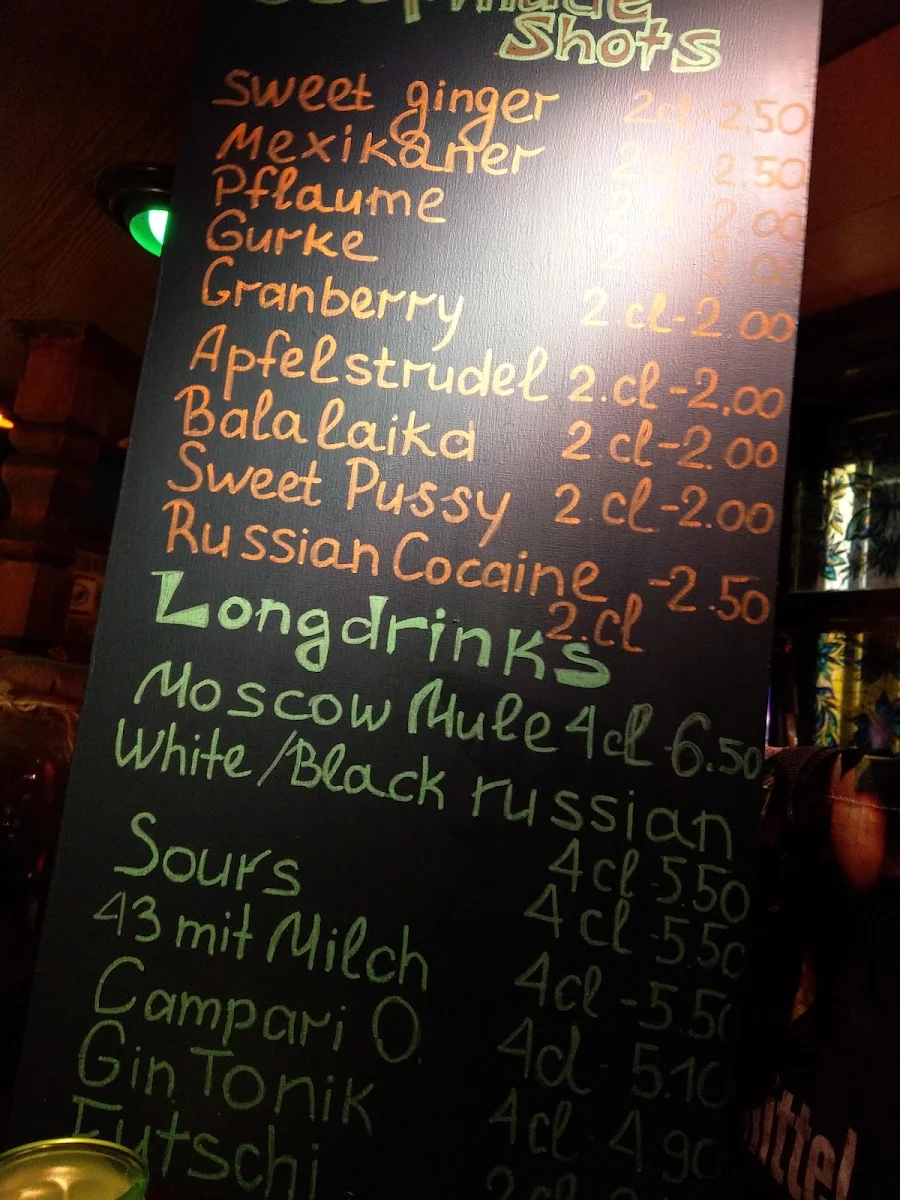 Shots
Sweet ginger 2cl - 2,50
Mexikaner 2cl - 2.50
Pflaume 2.00
Gurke
Granberry 2.cl-2.00
Apfelstrudel 2.cl-2,00
Balalaika 2.cl-2.00
Sweet Pussy 2.cl-2.00
Russian Cocaine -2.50
2.cl
Longdrinks
Moscow Mule 4cl-6.50
White/Black russian
4cl-5.50
Sours 4cl-5.50
43 mit Milch 4cl-5.50
Campari O. 4cl-5.10
Gin Tonik 4cl-4.90
Futschi